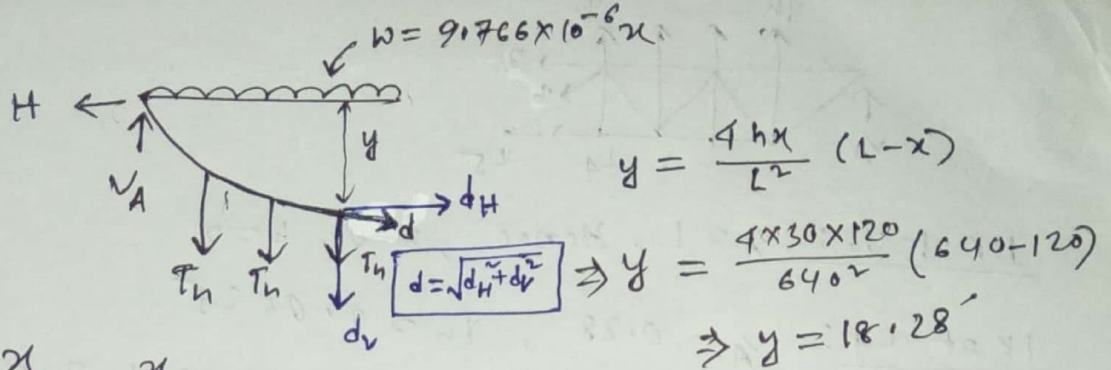 w = 9.766 × 10⁻⁶ x
H
y
V_A
d_H
d
T_n T_n T_n
d = √(d_H² + d_v²)
d_v
y = 4hx / L² (L - x)
⇒ y = 4×30×120 / 640² (640-120)
⇒ y = 18.28'
x x